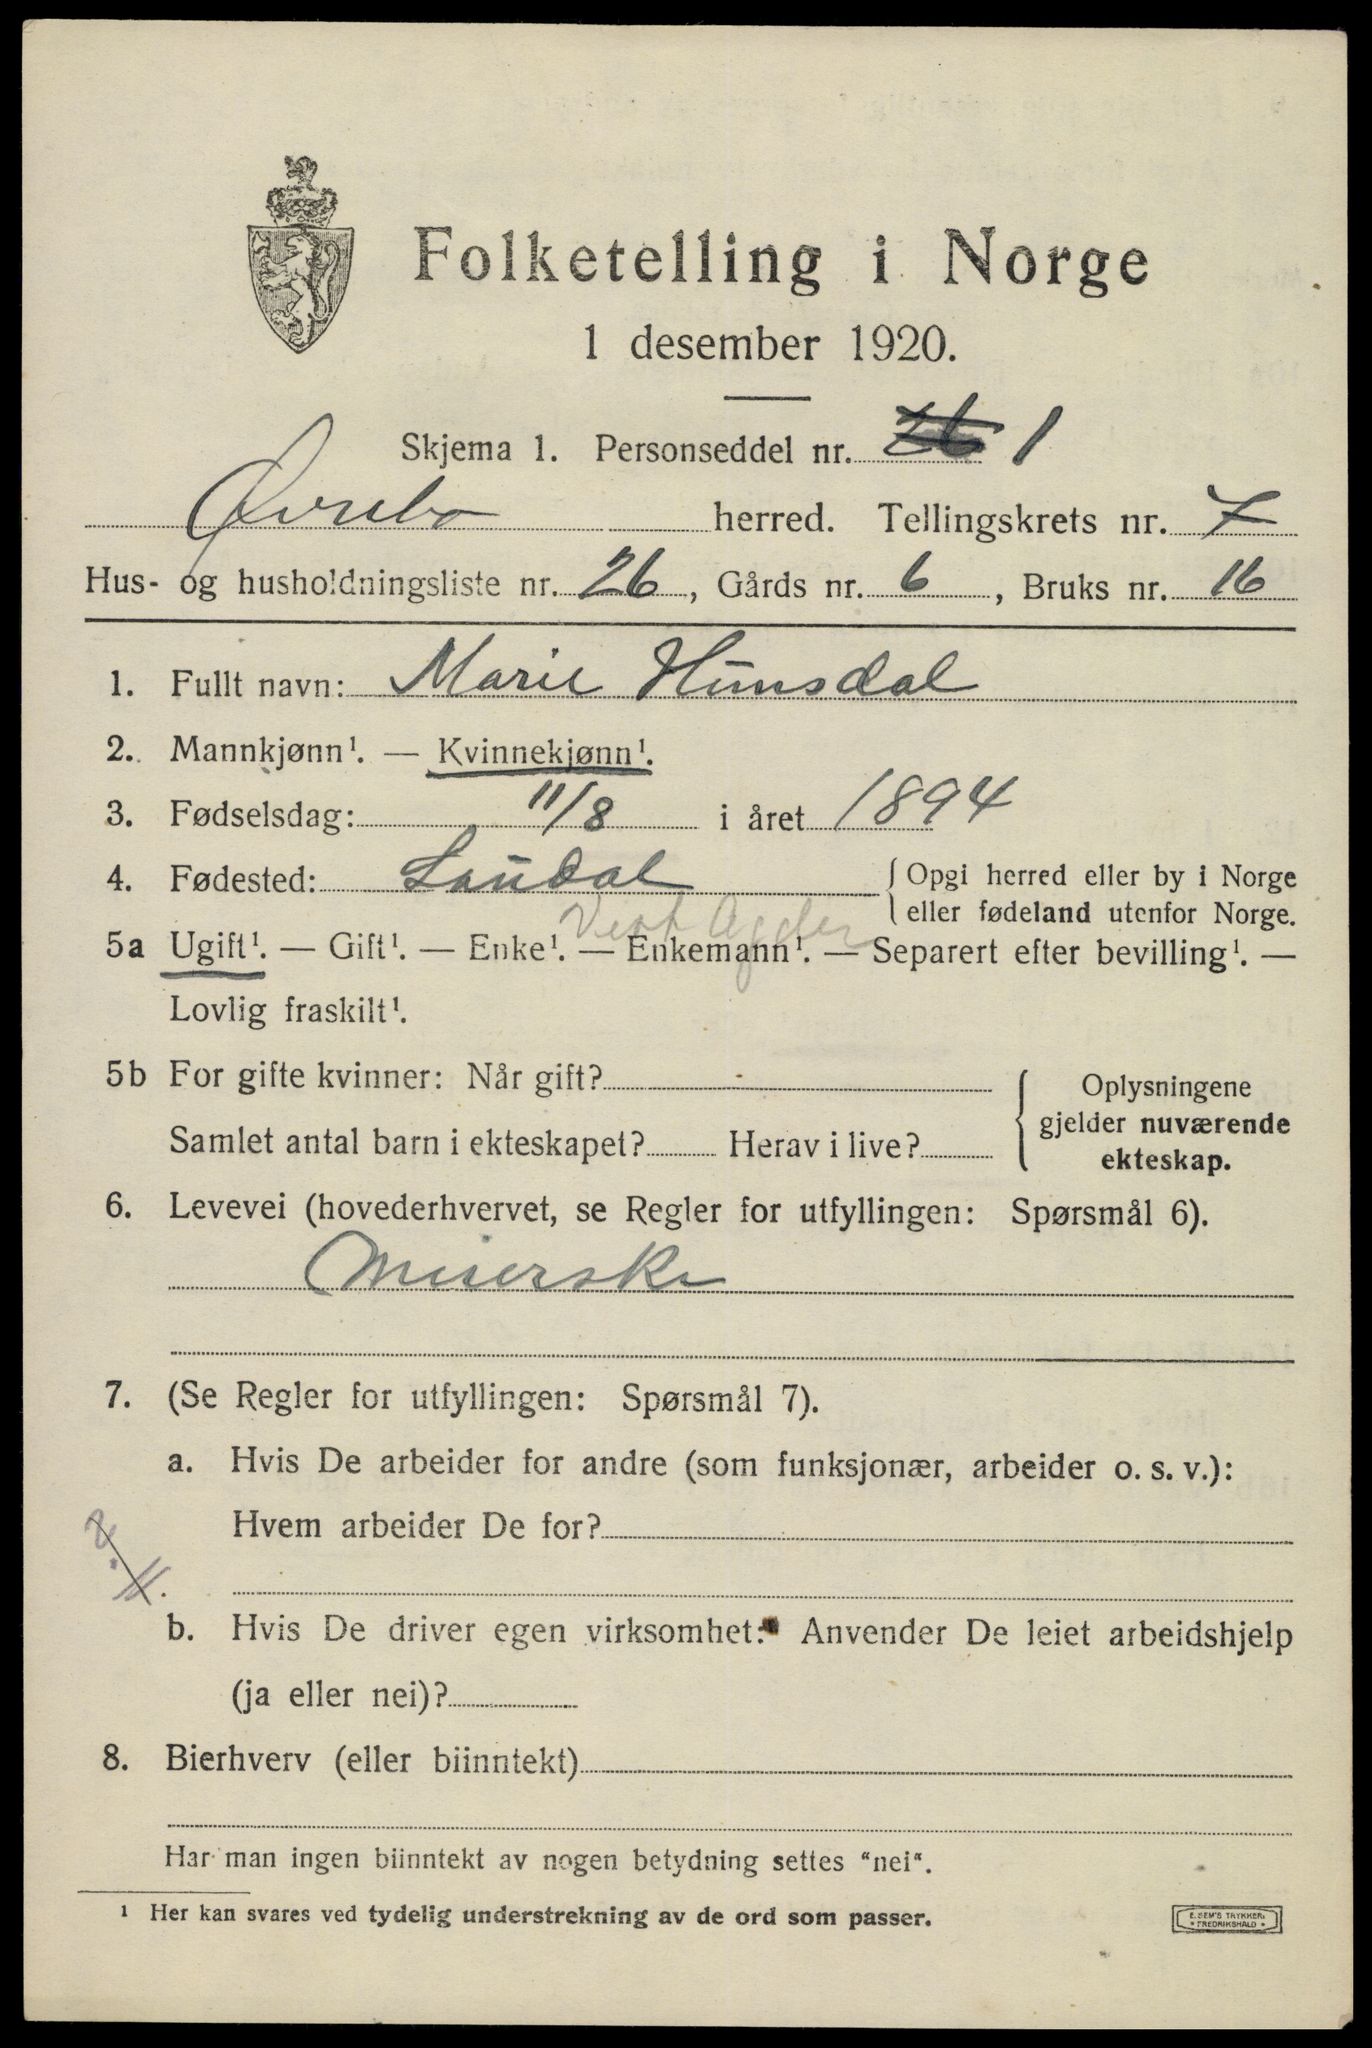 Folketelling i Norge
1 desember 1920.
Skjema 1. Personseddel nr. 26 1
Øvrebø herred. Tellingskrets nr. 7
Hus- og husholdningsliste nr. 26, Gårds nr. 6, Bruks nr. 16
1. Fullt navn: Marie Hunsdal
2. Mannkjønn¹. — Kvinnekjønn¹.
3. Fødselsdag: 11/8 i året 1894
4. Fødested: Laudal { Opgi herred eller by i Norge
eller fødeland utenfor Norge.
Vest Agder
5a Ugift¹. — Gift¹. — Enke¹. — Enkemann¹. — Separert efter bevilling¹. —
Lovlig fraskilt¹.
5b For gifte kvinner: Når gift?
Samlet antal barn i ekteskapet? Herav i live?
{ Oplysningene
gjelder nuværende
ekteskap.
6. Levevei (hovederhvervet, se Regler for utfyllingen: Spørsmål 6).
Meierske
7. (Se Regler for utfyllingen: Spørsmål 7).
a. Hvis De arbeider for andre (som funksjonær, arbeider o. s. v.):
Hvem arbeider De for?
b. Hvis De driver egen virksomhet: Anvender De leiet arbeidshjelp
(ja eller nei)?
8. Bierhverv (eller biinntekt)
Har man ingen biinntekt av nogen betydning settes "nei".
¹ Her kan svares ved tydelig understrekning av de ord som passer.
E. SEM'S TRYKKERI
* FREDRIKSHALD *